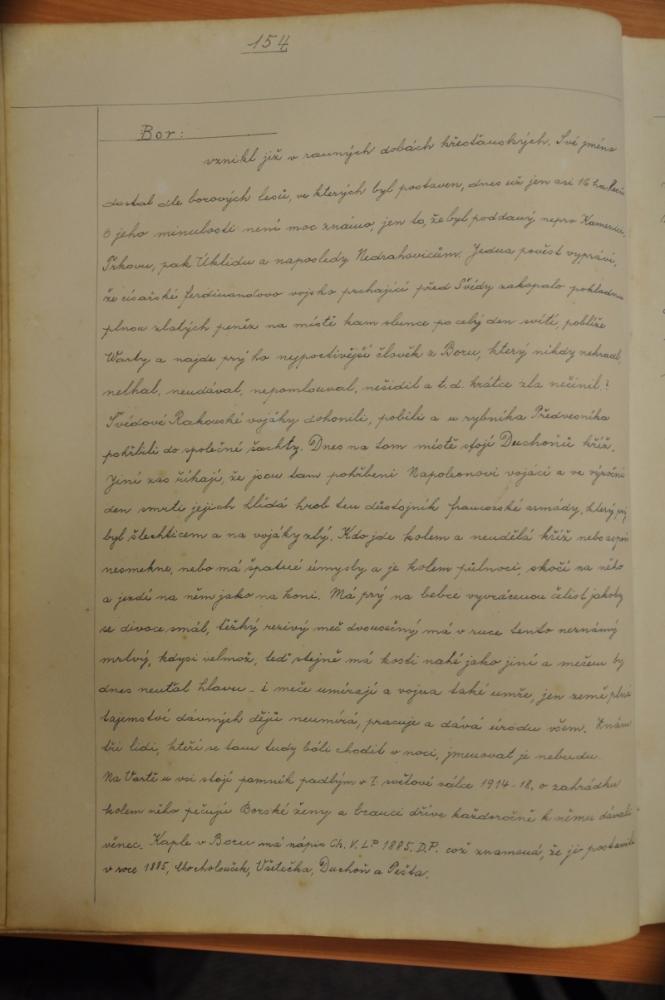 154
Bor:
vznikl již v raných dobách křesťanských. Své jméno
dostal dle borových lesů, ve kterých byl postaven, dnes už jen asi 16
O jeho minulosti není moc známo, jen to, že byl poddaný nepro Kamenici,
Prkovu, pak Úklidu a naposledy Nedrahovicům. Jedna pověst vypráví,
že císařské Ferdinandovo vojsko prchající před Švédy zakopalo pokladnu
plnou zlatých peněz na místě kam slunce po celý den svítí, poblíže
Warty a najde prý ho nejpoctivější člověk z Boru, který nikdy nekradl,
nelhal, neudával, nepomlouval, nešidil a t.d. krátce zla nečinil?
Švédové Rakouské vojáky dohonili, pobili a u rybníka Předvesníka
pohřbili do společné šachty. Dnes na tom místě stojí Duchoňů kříž.
Jiní zas říkají, že jsou tam pohřbeni Napoleonovi vojáci a ve výroční
den smrti jejich hlídá hrob ten důstojník francouzské armády, který prý
byl šlechticem a na vojáky zlý. Kdo jde kolem a neudělá kříž nebo aspoň
nesmekne, nebo má špatné úmysly a je kolem půlnoci, skočí na něho
a jezdí na něm jako na koni. Má prý na lebce vyvrácenou čelist jakoby
se divoce smál, těžký rezivý meč dvousečný má v ruce tento neznámý
mrtvý, kdysi velmož, teď stejně má kosti nahé jako jiní a mečem by
dnes neuťal hlavu - i meče umírají a vojna také umře, jen země plna
tajemství dávných dějů neumírá, pracuje a dává úrodu všem. Znám
tři lidi, kteří se tam tudy báli chodit v noci, jmenovat je nebudu.
Na Vartě u vsi stojí pomník padlým v I. světové válce 1914-18, o zahrádku
kolem něho pečují Borské ženy a branci dříve každoročně k němu dávali
věnec. Kaple v Boru má nápis Ch. V. L.P. 1885. D.P. což znamená, že ji postavili
v roce 1885, Chocholouček, Všetečka, Duchoň a Pešta.